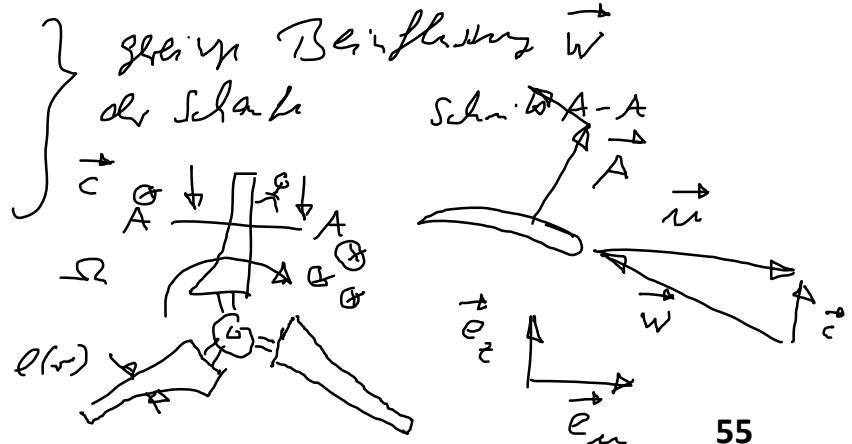 geringe Beinflussung w
der Schaufel
Schnitt A-A
A
c
A A
u
Ω
w c
e z
l(r)
e u
55